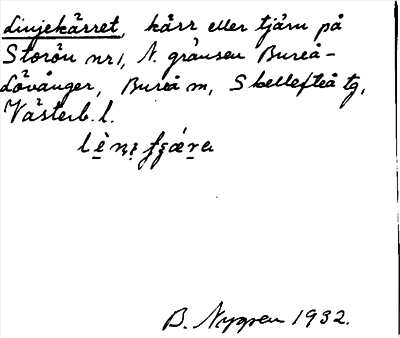 Linjekärret, kärr eller tjärn på
Storön nr 1, N. gränsen Bureå-
Lövånger, Bureå m, Skellefteå tg,
Västerb. l.
B. Nygren 1932.